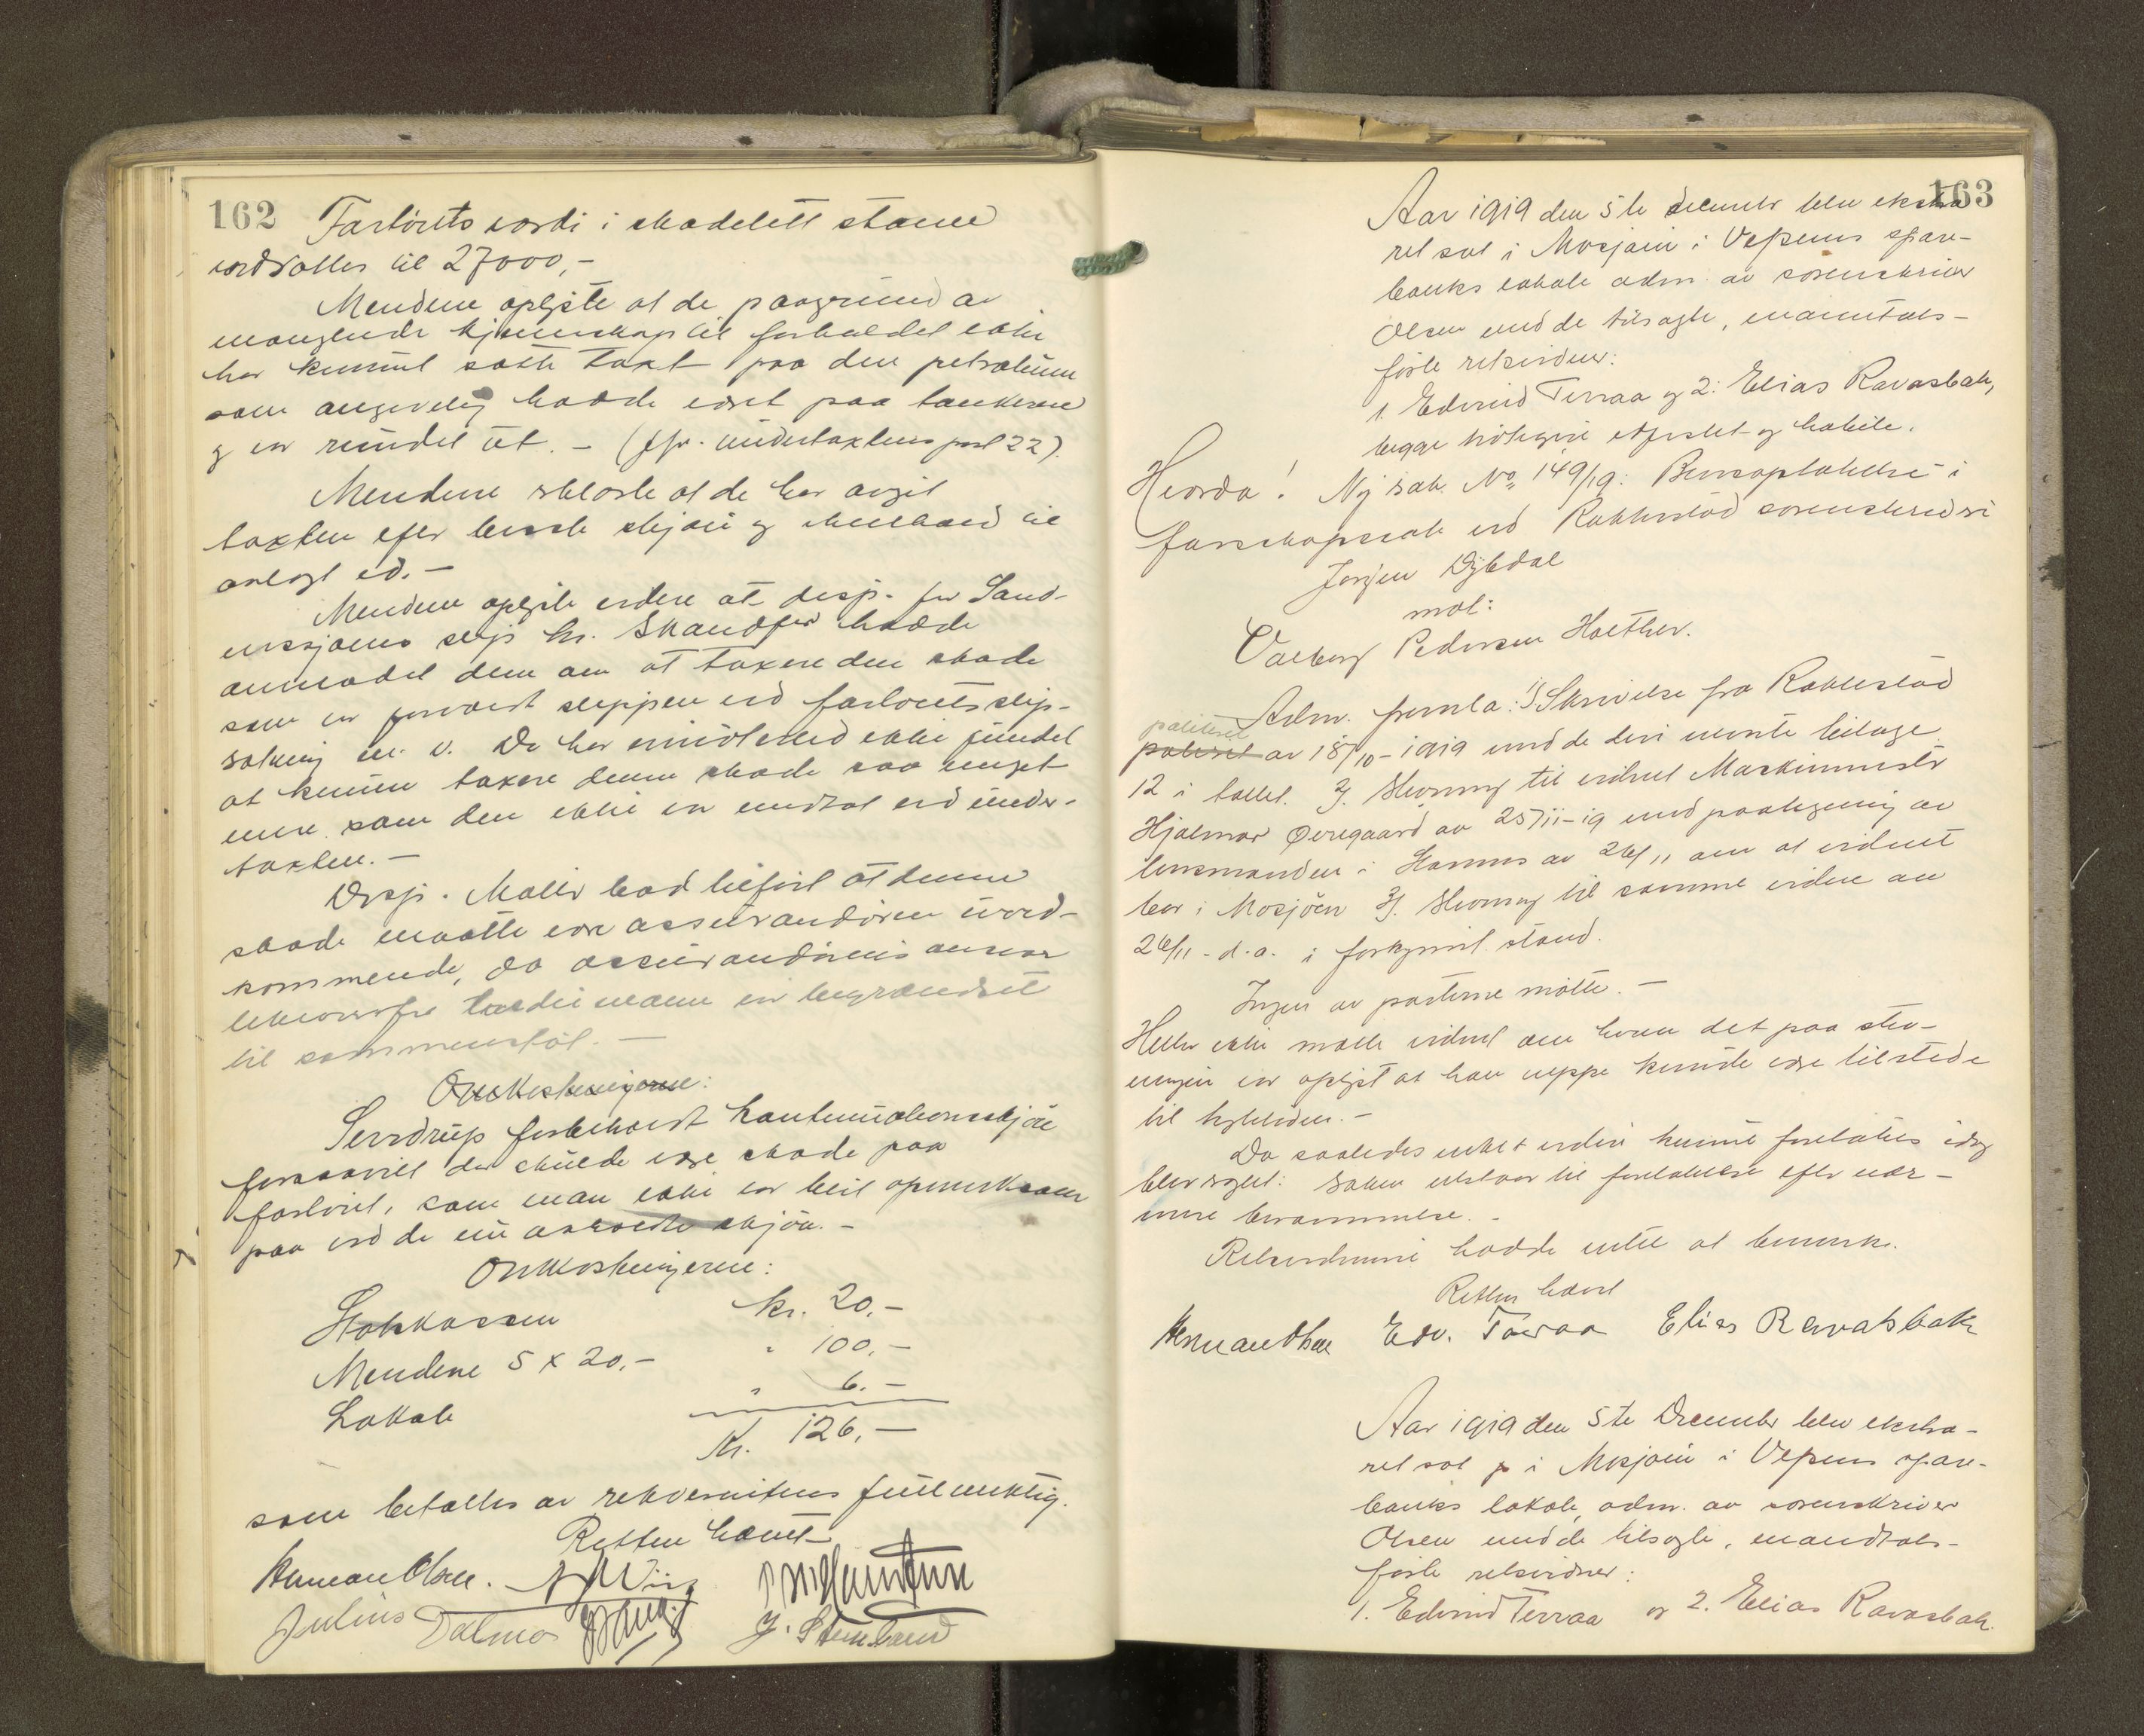 162
Fartöiets værdi i skadelett stand
værdsættes til 27000,-
Mendene oplyste at de paa grund av
manglende kjennskap til forholdet ikke
har kunnet sætte takst paa den petroleum
som angivelig hadde været paa tankene
og var rundet ut. - (jfr. undertaxtens post 22).
Mendene erklærte at de har avgit
taxten efter bedste skjön og henhold til
avlagt ed. -
Mendene oplyste videre at disp. for Sand-
nessjøens slip hr. Skandfer hadde
anmodet dem om at taxere den skade
som var forvoldt slippen ved fartöiets slip-
sætning m. v. De har imidlertid ikke fundet
at kunne taxere denne skade saa meget
mere som den ikke er medtat ved under-
taxten. -
Disp. Møller bad tilført at denne
skade maatte være assurandøren uved-
kommende, da assurandørens ansvar
likeoverfor tredie mann er begrændset
til sammenstöt. -
Omkostningerne:
Serdrup forbeholdt kontinuationsskjön
forsaavidt der skulde være skade paa
fartöiet, som man ikke var blit opmerksom
paa ved de nu avholdte skjön. -
Omkostningerne:
Statskassen kr. 20.-
Mendene 5 x 20.- " 100.-
Lokale " 6.-
Kr. 126.-
som betaltes av rekvirentens fuldmektig.
Retten hævet
Herman Olsen.
Julius Dalmo J. Strmland
163
Aar 1919 den 5te december blev ekstra
ret sat i Mosjøen i Vefsens spare-
banks lokale adm. av sorenskriver
Olsen med de tilsagte, mandtals-
førte retsvidner:
1. Edvind Terraa og 2: Elias Ravasbak,
begge tidligere edfæstet og habile.
Hvorda! Ny sak No 149/19: Bevisoptakelse i
farskapssak ved Rakkestad sorenskriveri
Jørgen Dybdal
mot:
Valborg Pedersen Holther.
Adm. fremla: 1) Skrivelse fra Rakkestad
politiret
politiret av 18/10-1919 med de deri nevnte bilage
12 i tallet. 2) Stevning til vidnet Maskinmester
Hjalmar Øvregaard av 25/11-19 med paategning av
lensmanden i Hamnes av 26/11 om at vidnet
bor i Mosjøen 3) Stevning til samme vidne av
26/11 - d.a. i forkynt stand.
Ingen av parterne møtte. -
Heller ikke møtte vidnet om hvem det paa stev-
ningen var oplyst at han neppe kunde være tilstede
til rettstiden. -
Da saaledes intet videre kunde foretages idag
blev avgit: Saken utstaar til foretakelse efter nær-
mere berammelse. -
Retsvidnerne hadde intet at bemerke.
Retten hævet
Herman Olsen Edv. Terraa Elias Ravatsbakk
Aar 1919 den 5te December blev ekstra-
ret sat i Mosjøen i Vefsens spare-
banks lokale, adm. av sorenskriver
Olsen med de tilsagte, mandtals-
førte retsvidner:
1. Edvind Terraa og 2. Elias Ravasbak.